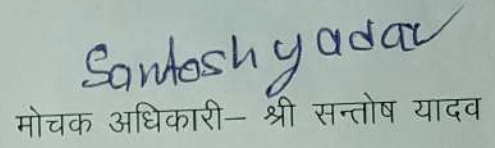 Santosh yadav
मोचक अधिकारी– श्री सन्तोष यादव